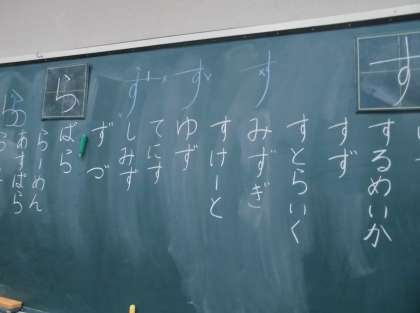 す
するめいか
すず
すとらいく
みずぎ
すけーと
ゆず
てにす
しみず
ず づ
ら
ばら
らーめん
あすぱら